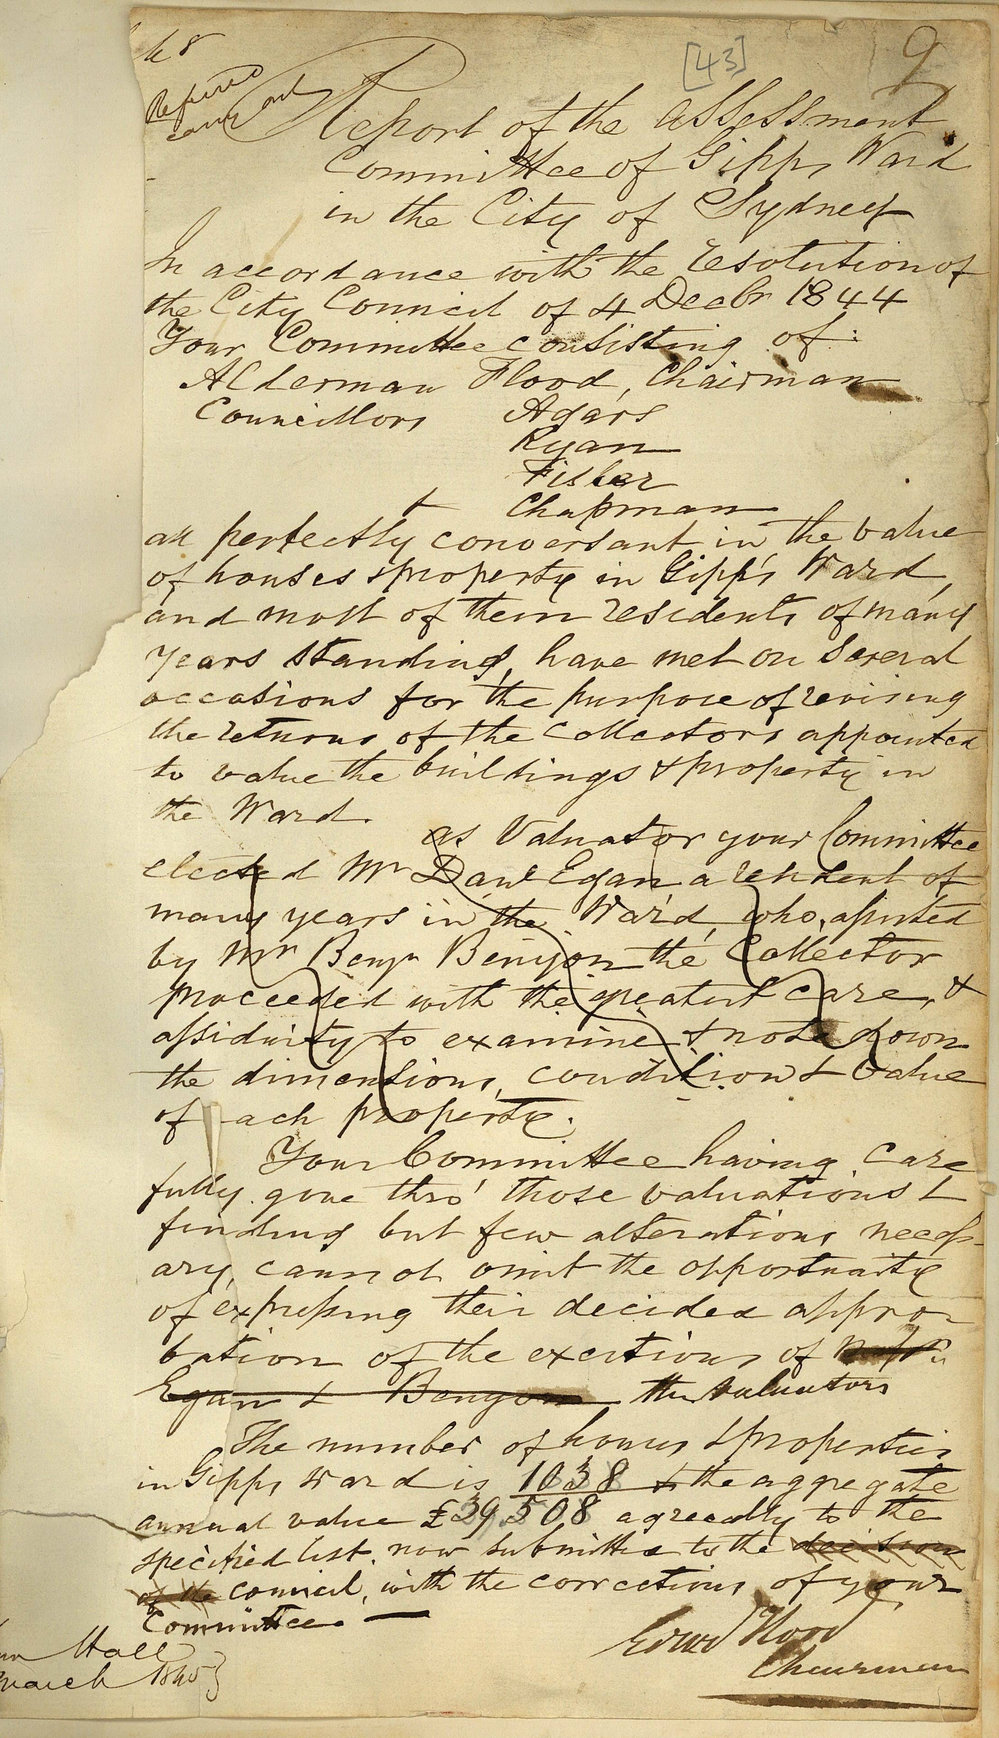 [43]
9
Report of the Assessment
Committee of Gipps Ward
in the City of Sydney
In accordance with the resolution of
the City Council of 4 Decbr 1844
Your Committee consisting of:
Alderman Flood, Chairman
Councillors Agars
Ryan
Fisher
Chapman
all perfectly conversant in the value
of houses & property in Gipp's Ward,
and most of them residents of many
years standing, have met on several
occasions for the purpose of revising
the returns of the Collectors appointed
to value the buildings & property in
the Ward.
As Valuator your Committee
elected Mr Danl Egan a resident of
many years in the Ward, who, assisted
by Mr Benjn Benyon the Collector
proceeded with the greatest care, &
assiduity to examine & note down
the dimensions, condition & value
of each property.
Your Committee having care
fully gone thro' those valuations &
finding but few alterations necess-
ary, cannot omit the opportunity
of expressing their decided appro-
bation of the exertions of
Egan & Benyon the Valuators
The number of houses & properties
in Gipps Ward is 1038 & the aggregate
annual value £39,508 agreeably to the
specified list now submitted to the decision
of the council, with the corrections of your
Committee. —
Edwd Flood
Chairman
Hall
March 1845}